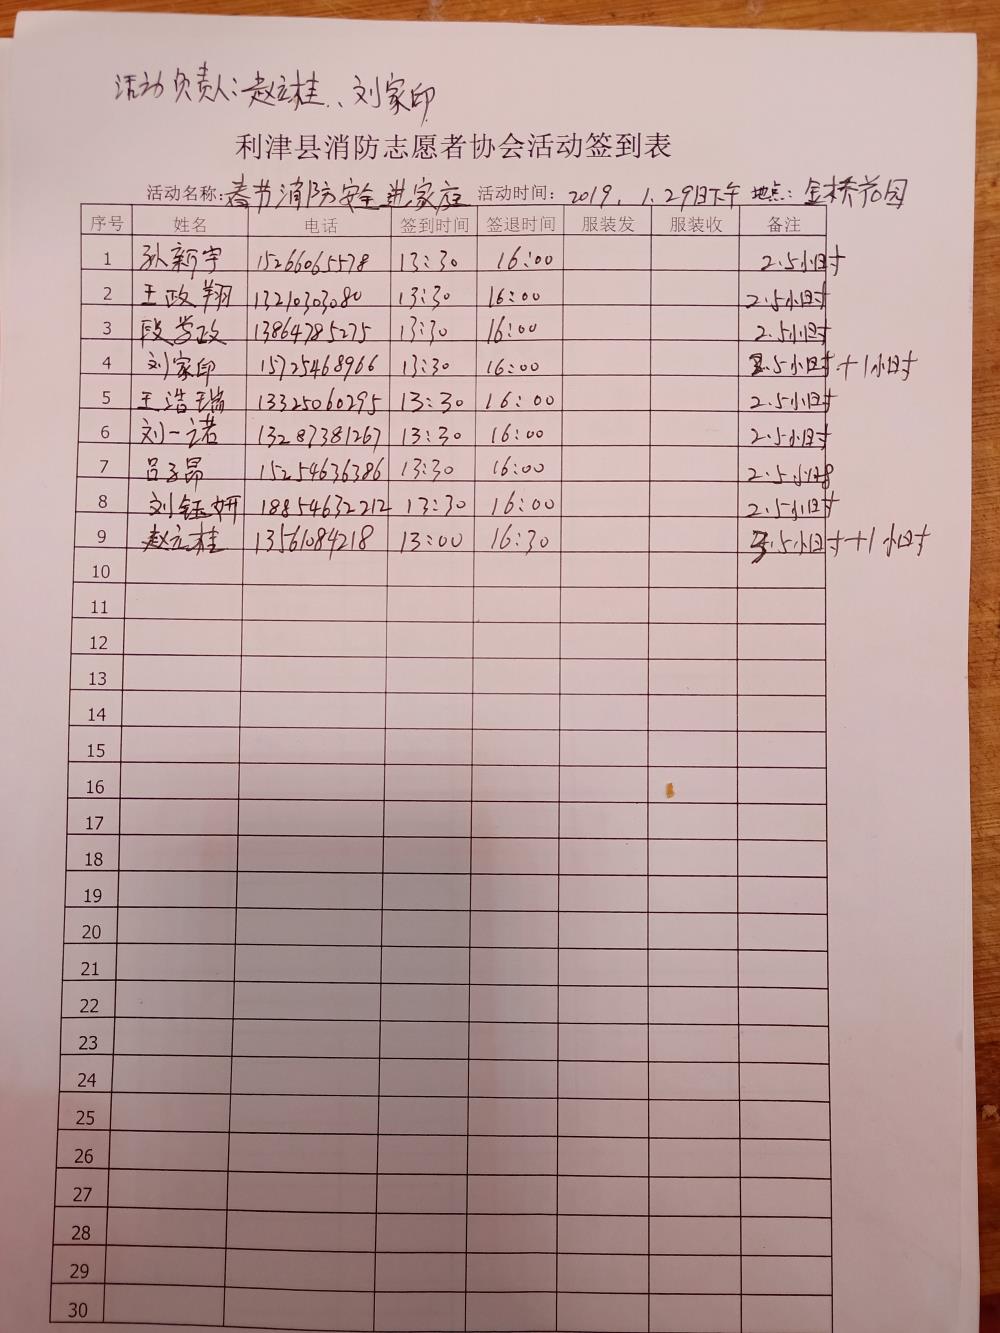 活动负责人:赵立桂、刘家印
利津县消防志愿者协会活动签到表
活动名称:春节消防安全进家庭 活动时间: 2019.1.29日下午 地点:金桥花园
序号 姓名 电话 签到时间 签退时间 服装发 服装收 备注
1 孙新宇 15266065578 13:30 16:00 2.5小时
2 王政翔 13210303080 13:30 16:00 2.5小时
3 段学政 13864785275 13:30 16:00 2.5小时
4 刘家印 15725468966 13:30 16:00 2.5小时+1小时
5 王浩瑞 13325060295 13:30 16:00 2.5小时
6 刘一诺 13287381267 13:30 16:00 2.5小时
7 吕子昂 15254636386 13:30 16:00 2.5小时
8 刘钰妍 18854632212 13:30 16:00 2.5小时
9 赵立桂 13561084218 13:00 16:30 3.5小时+1小时
10
11
12
13
14
15
16
17
18
19
20
21
22
23
24
25
26
27
28
29
30